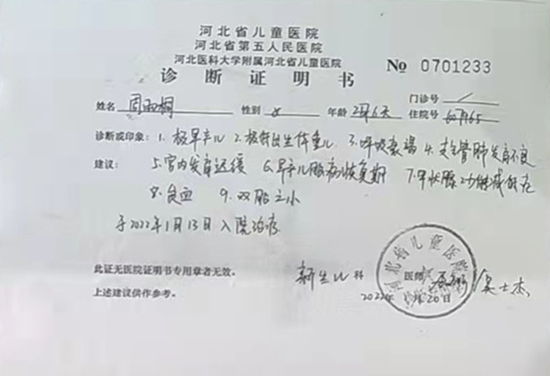 河北省儿童医院
河北省第五人民医院
河北医科大学附属河北省儿童医院
诊断证明书
№ 0701233
门诊号
姓名 周雨桐 性别 女 年龄 2月6天 住院号 607165
诊断或印象: 1.极早产儿 2.极低出生体重儿 3.呼吸衰竭 4.支气管肺发育不良
建议: 5.宫内发育迟缓 6.早产儿脑病恢复期 7.甲状腺功能减低症
8.贫血 9.双胎之小
于2022年1月13日入院治疗
此证无医院证明书专用章者无效。
上述建议供作参考。
新生儿科 医师 吴士杰
2022年 月20日
河北省儿童医院